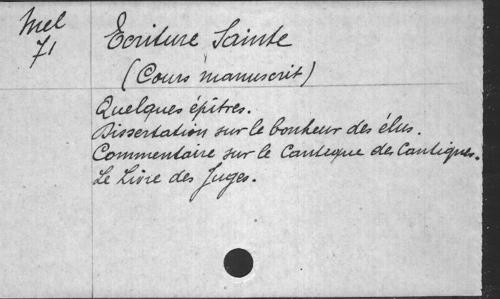 Mel
71
Ecriture Sainte
(Cours manuscrit)
Quelques épîtres.
Dissertation sur le bonheur des élus.
Commentaire sur le Cantique des Cantiques.
Le Livre des Juges.